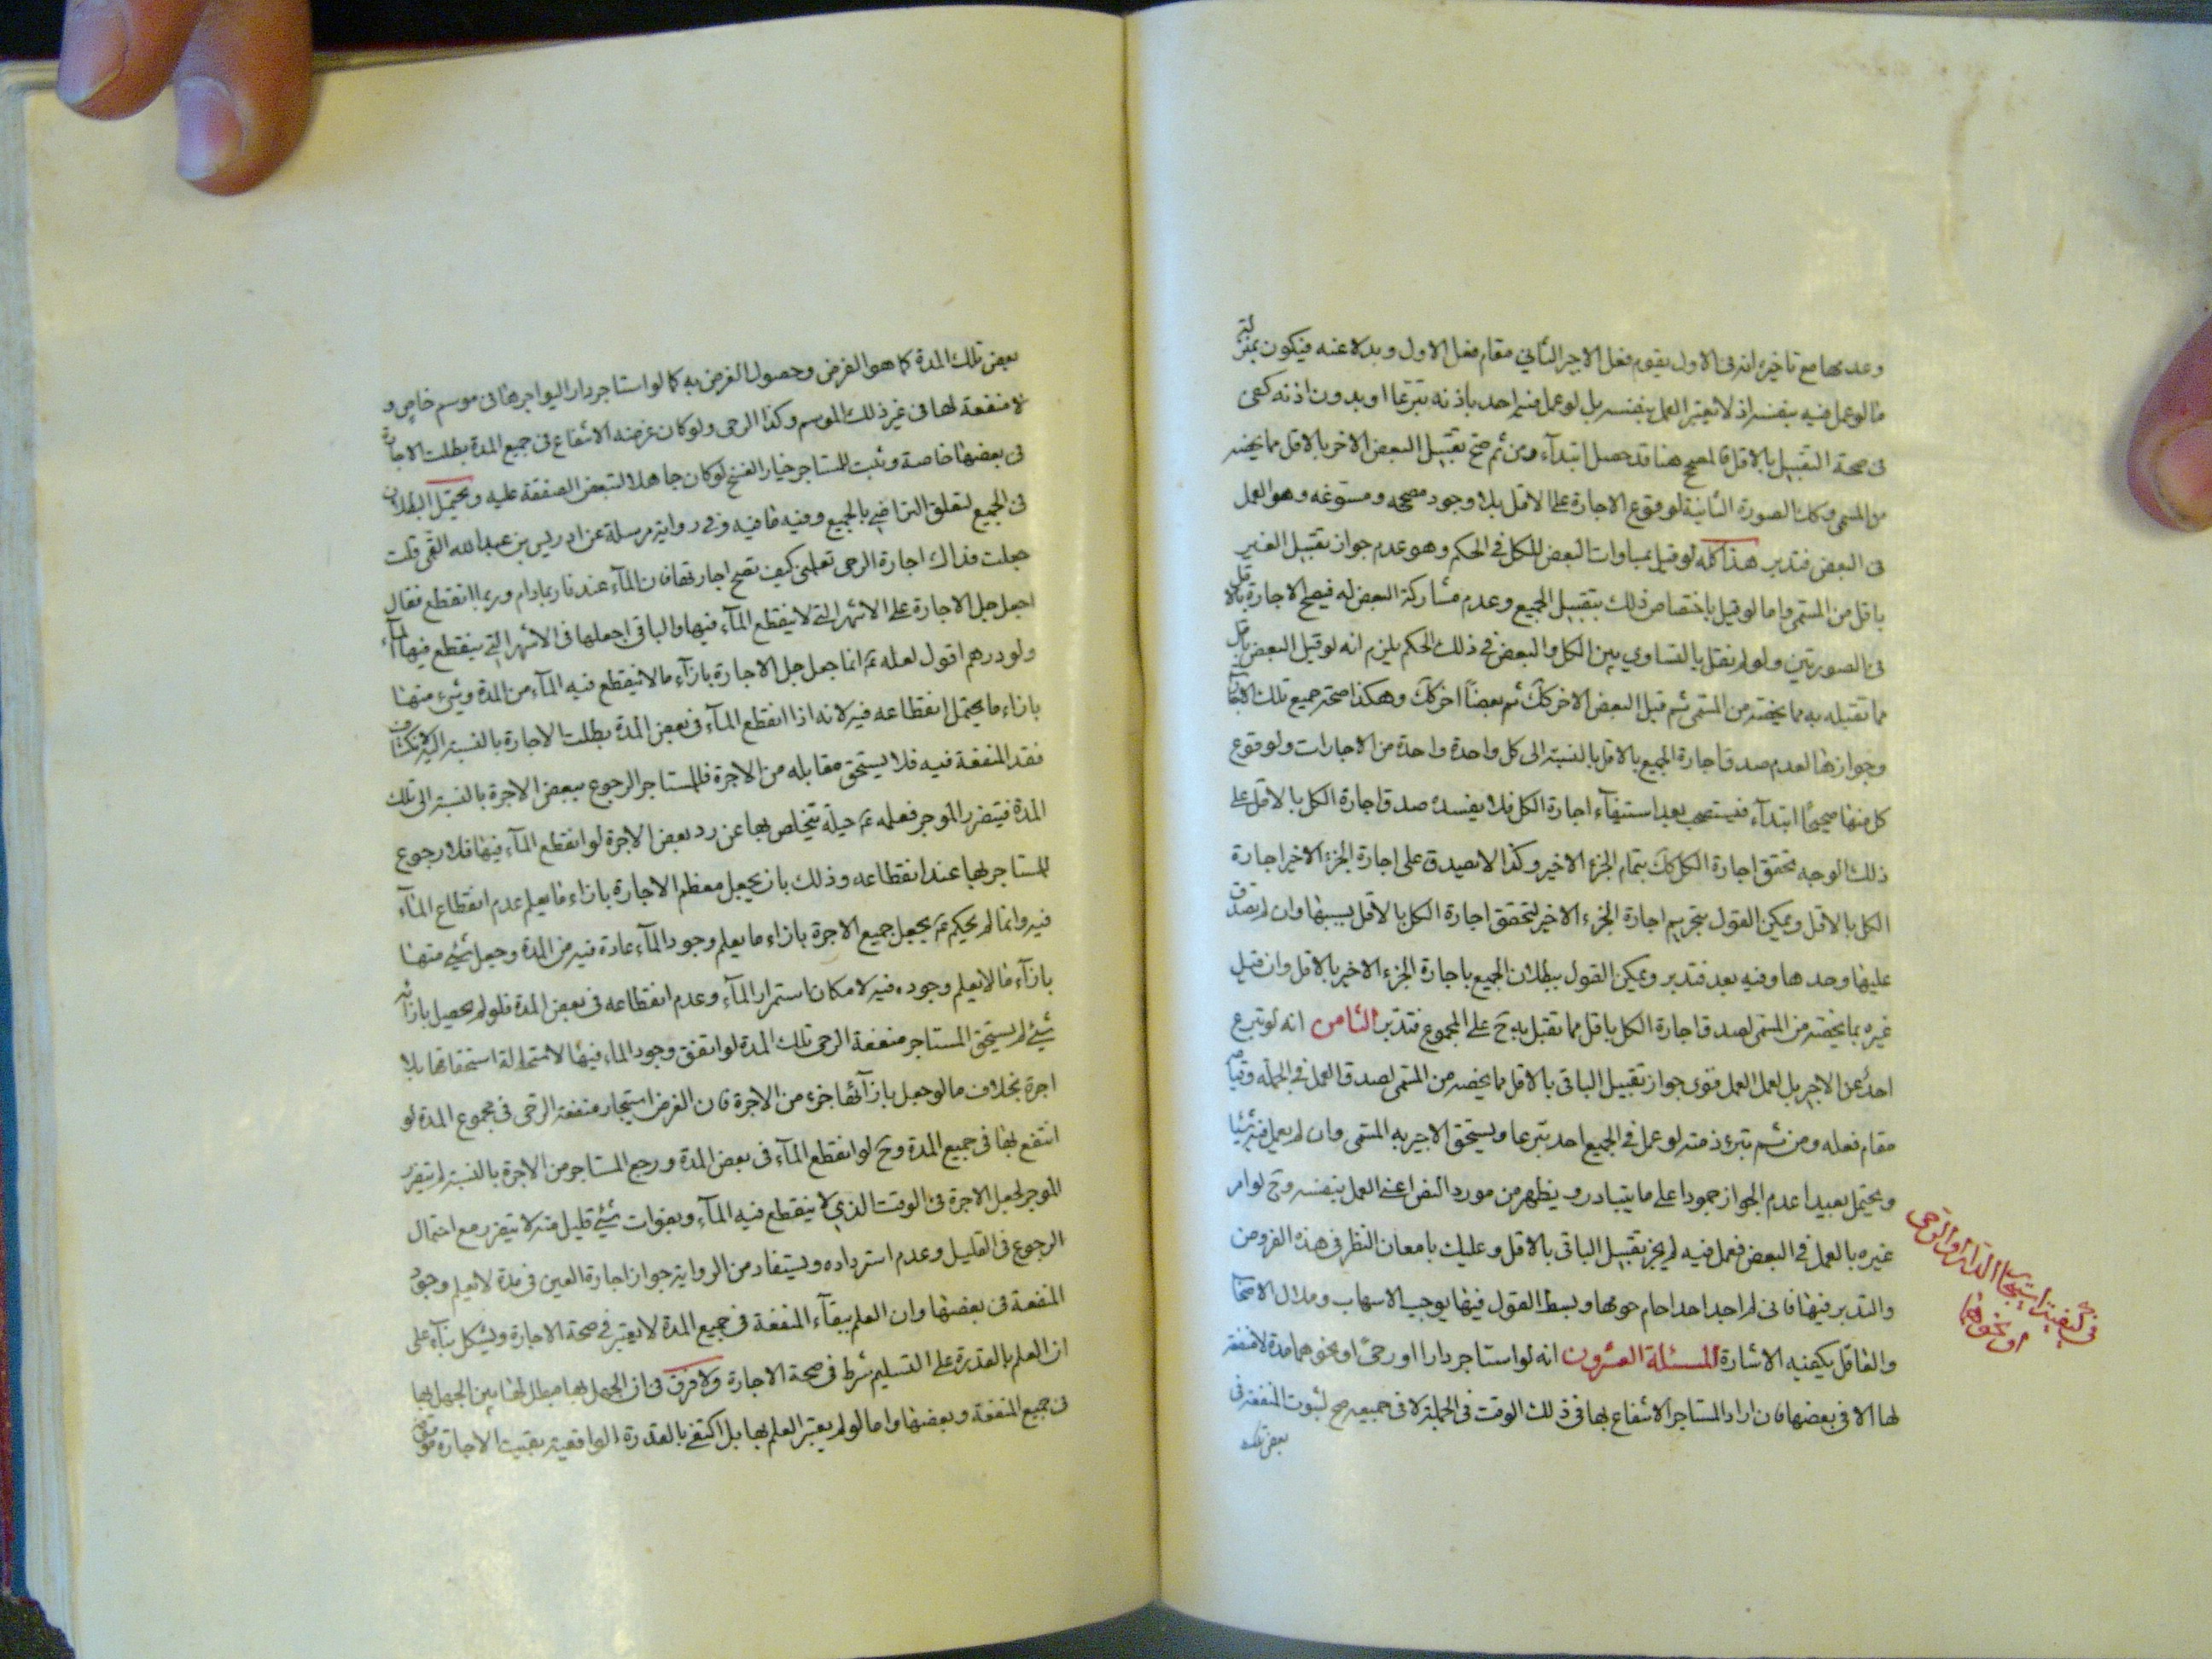 وعد بها مع تاخيره انه فى الاول يقوم فعل الاجير الثانى مقام فعل الاول وبدلا عنه فيكون بمنزلته
ما لو عمل فيه بنفسه اذ لا يعتبر العمل بنفسه بل لو عمل فيه احد باذنه تبرعا او بدون اذنه كفى
فى صحة التقبيل بالاقل فالمصحح هنا قد حصل ابتدآء ومن ثم صح تقبيل البعض الاخر بالاقل مما يخصه
من المسمى وكك الصورة الثانية لوقوع الاجارة على الاقل بلا وجود مصححه ومسوغه وهو العمل
فى البعض فتدبر هذا كله لو قيل بمساوات البعض للكل فى الحكم وهو عدم جواز تقبيل الغير
باقل من المسمى واما لو قيل باختصاص ذلك بتقبيل الجميع وعدم مشاركة البعض له فيصح الاجارة بالاقل
فى الصورتين ولو لم نقل بالتساوى بين الكل والبعض فى ذلك الحكم يلزم انه لو قبل البعض باقل
مما تقبله به مما يخصه من المسمى ثم قبل البعض الاخر كك ثم بعضاً اخر كك وهكذا صحة جميع تلك
وجوازها لعدم صدق اجارة الجميع بالاقل بالنسبة الى كل واحدة واحدة من الاجارات ولوقوع
كل منها صحيحاً ابتدآء فيستصحب بعد استيفآء اجارة الكل فلا يفسده صدق اجارة الكل بالاقل على
ذلك الوجه لتحقق اجارة الكل كك بتمام الجزء الاخير وكذا لا يصدق على اجارة الجزء الاخير اجارة
الكل بالاقل ويمكن القول بتحريم اجارة الجزء الاخير لتحقق اجارة الكل بالاقل بسببها وان لم يصدق
عليها وحدها وفيه بعد فتدبر ويمكن القول ببطلان الجميع باجارة الجزء الاخير بالاقل وان قبل
غيره بما يخصه من المسمى لصدق اجارة الكل باقل مما تقبل به ح على المجموع فتدبر الثامن انه لو تبرع
احد عن الاجير بل لعمل العمل قوى جواز تقبيل الباقى بالاقل مما يخصه من المسمى لصدق العمل فى الجملة وقيامه
مقام فعله ومن ثم تبرء ذمته لو عمل فى الجميع احد تبرعا ويستحق الاجير به المسمى وان لم يعمل فيه شيئا
ويحتمل بعيدا عدم الجواز جمودا على ما يتبادر ويظهر من مورد النص اعنى العمل بنفسه وح لو امر
غيره بالعمل فى البعض فعمل فيه لم يجز تقبيل الباقى بالاقل وعليك بامعان النظر فى هذه الفروض
والتدبر فيها فانى لم اجد احدا حام حولها وبسط القول فيها يوجب الاسهاب وملال الاصحاب
والعاقل يكفيه الاشارة المسئلة العشرون انه لو استاجر دارا او رحىً او نحوهما مدة لا منفعة
لها الا فى بعضها فان اراد المستاجر الانتفاع بها فى ذلك الوقت فى الجملة لا فى جميعه صح لثبوت المنفعة فى
بعض تلك
فى كيفية استيجار الدار والرحى
او نحوهما
بعض تلك المدة كما هو الفرض وحصول الغرض به كما لو استاجر دار اليواجرها فى موسم خاص و
لا منفعة لها فى غير ذلك الموسم وكذا الرحى ولو كان غرضه الانتفاع فى جميع المدة بطلت الاجارة
فى بعضها خاصة وثبت للمستاجر خيار الفسخ لو كان جاهلا لتبعض الصفقة عليه ويحتمل البطلان
فى الجميع لتعلق التراضى بالجميع وفيه ما فيه وفى رواية مرسلة عن ادريس بن عبد الله القمى قلت
جعلت فداك اجارة الرحى تعلمنى كيف تصح اجارتها فان المآء عندنا ربما دام وربما انقطع فقال
اجعل جل الاجارة على الاشهر التى لا ينقطع المآء فيها والباقى اجعلها فى الاشهر التى ينقطع فيها المآء
ولو درهم اقول لعله ع انما جعل جل الاجارة بازآء ما لا ينقطع فيه المآء من المدة وشىء منها
بازاء ما يحتمل انقطاعه فيه لانه اذا انقطع المآء فى بعض المدة بطلت الاجارة بالنسبة اليه لانكشاف
فقد المنفعة فيه فلا يستحق مقابله من الاجرة فللمستاجر الرجوع ببعض الاجرة بالنسبة الى تلك
المدة فيتضرر الموجر فعلمه ع حيلة يتخلص بها عن رد بعض الاجرة لو انقطع المآء فيها فلا رجوع
للمستاجر بها عند انقطاعه وذلك بان يجعل معظم الاجارة بازاء ما يعلم عدم انقطاع المآء
فيه وانما لم يحكم ع بجعل جميع الاجرة بازاء ما يعلم وجود المآء عادة فيه من المدة وجعل شىء منها
بازآء ما لا يعلم وجوده فيه لامكان استمرار المآء وعدم انقطاعه فى بعض المدة فلو لم يحصل بازائه
شىء لم يستحق المستاجر منفعة الرحى تلك المدة لو اتفق وجود الماء فيها لاستحالة استحقاقها بلا
اجرة بخلاف ما لو جعل بازآئها جزء من الاجرة فان الغرض استيجار منفعة الرحى فى مجموع المدة لو
انتفع بها فى جميع المدة وح لو انقطع المآء فى بعض المدة ورجع المستاجر من الاجرة بالنسبة لم يتضرر
الموجر لجعل الاجرة فى الوقت الذى لا ينقطع فيه المآء وبفوات شىء قليل منه لا يتضرر مع احتمال
الرجوع فى القليل وعدم استرداده ويستفاد من الرواية جواز اجارة العين فى مدة لا يعلم وجود
المنفعة فى بعضها وان العلم ببقآء المنفعة فى جميع المدة لا يعتبر فى صحة الاجارة ويشكل بنآء على
ان العلم بالقدرة على التسليم شرط فى صحة الاجارة ولا فرق فى ان الجهل بها مبطل لها بين الجهل بها
فى جميع المنفعة وبعضها واما لو لم يعتبر العلم بها بل اكتفى بالقدرة الواقعية بقيت الاجارة